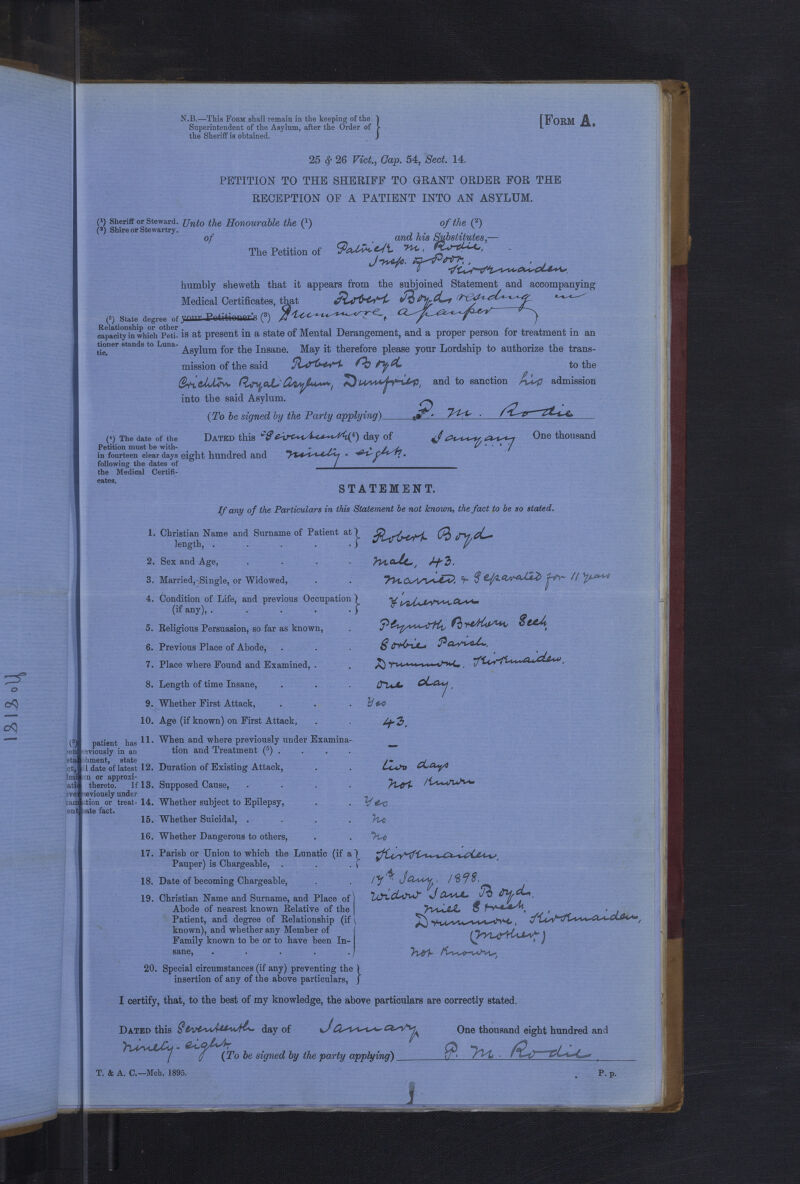 N.B.—This Form shall remain in the keeping of the
Superintendent of the Asylum, after the Order of
the Sheriff is obtained.
[Form A.
25 & 26 Vict., Cap. 54, Sect. 14.
PETITION TO THE SHERIFF TO GRANT ORDER FOR THE
RECEPTION OF A PATIENT INTO AN ASYLUM.
(1) Sheriff or Steward.
(2) Shire or Stewartry.
Unto the Honourable the (1) of the (2)
of and his Substitutes,—
The Petition of Patrick M. Rodie,
Insp. of Poor,
Kirkmaiden,
humbly sheweth that it appears from the subjoined Statement and accompanying
Medical Certificates, that Robert Boyd, residing in
your Petitioner's (3) Drummore, a pauper
(3) State degree of
Relationship or other
capacity in which Peti-
tioner stands to Luna-
tic.
is at present in a state of Mental Derangement, and a proper person for treatment in an
Asylum for the Insane. May it therefore please your Lordship to authorize the trans-
mission of the said Robert Boyd to the
Crichton Royal Asylum, Dumfries, and to sanction his admission
into the said Asylum.
(To be signed by the Party applying) P. M. Rodie
(4) The date of the
Petition must be with-
in fourteen clear days
following the dates of
the Medical Certifi-
cates.
Dated this Seventeenth (4) day of January One thousand
eight hundred and ninety-eight.
STATEMENT.
If any of the Particulars in this Statement be not known, the fact to be so stated.
1. Christian Name and Surname of Patient at
length, . . . . . Robert Boyd
2. Sex and Age, . . . . male, 43.
3. Married, Single, or Widowed, . . Married & Separated for 11 years
4. Condition of Life, and previous Occupation
(if any), . . . . . . Fisherman
5. Religious Persuasion, so far as known, . Plymouth Brethern Sect,
6. Previous Place of Abode, . . . Sorbie Parish.
7. Place where Found and Examined, . . Drummore, Kirkmaiden.
8. Length of time Insane, . . . One day.
9. Whether First Attack, . . . Yes
10. Age (if known) on First Attack, . . 43.
11. When and where previously under Examina-
tion and Treatment (5) . . . . —
(5) patient has
previously in an
ment, state
date of latest
or approxi-
thereto. If
previously under
or treat-
state fact.
12. Duration of Existing Attack, . . two days
13. Supposed Cause, . . . . not known
14. Whether subject to Epilepsy, . . Yes
15. Whether Suicidal, . . . . no
16. Whether Dangerous to others, . . no
17. Parish or Union to which the Lunatic (if a
Pauper) is Chargeable, . . . Kirkmaiden,
18. Date of becoming Chargeable, . . 17th Jany. 1898.
19. Christian Name and Surname, and Place of
Abode of nearest known Relative of the
Patient, and degree of Relationship (if
known), and whether any Member of
Family known to be or to have been In-
sane, . . . . . .
Widow Jane Boyd,
Mill Street,
Drummore, Kirkmaiden,
(Mother,)
not known,
20. Special circumstances (if any) preventing the
insertion of any of the above particulars,
I certify, that, to the best of my knowledge, the above particulars are correctly stated.
Dated this Seventeenth day of January One thousand eight hundred and
ninety-eight (To be signed by the party applying) P. M. Rodie
T. & A. C.—Mch. 1895. P. p.